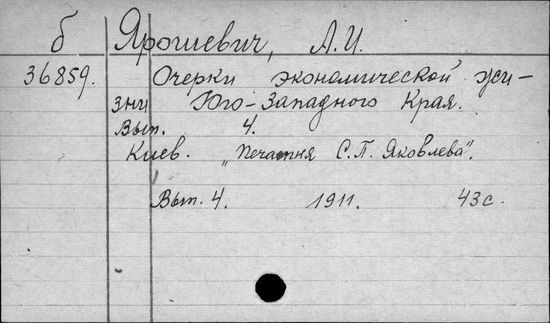 б Ярошевич, А.И.
36859. Очерки экономической жи-
зни Юго-Западного Края.
Вып. 4.
Киев. „Печатня С.П. Яковлева".
Вып. 4. 1911. 43 с.